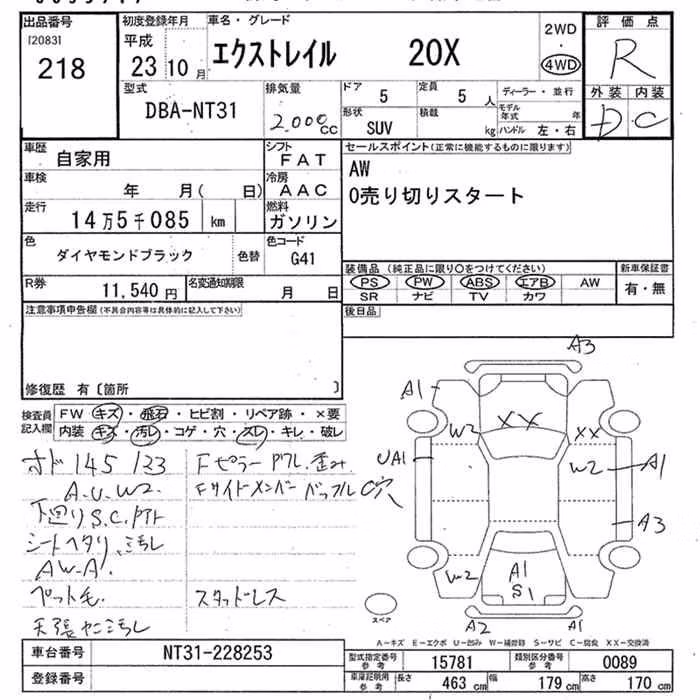 出品番号 初度登録年月 車名・グレード 評価点
[2083] 平成 2WD・4WD R
218 23 10月 エクストレイル 20X
外装 内装
D C
型式 排気量 ドア 5 定員 5人 ディーラー・並行
DBA-NT31 2.000cc 形状 SUV 積載 kg モデル年式 年
ハンドル 左・右
車歴 自家用 シフト FAT セールスポイント(正常に機能するものに限ります)
車検 年 月( 日) 冷房 AAC AW
走行 14万5千085 km 燃料 ガソリン 0売り切りスタート
色 ダイヤモンドブラック 色替 色コード G41
装備品(純正品に限り○をつけてください) 新車保証書
PS PW ABS エアB AW 有・無
SR ナビ TV カワ
R券 11,540円 名変通知期限 月 日
後日品
注意事項申告欄(不具合内容等は具体的に記入して下さい)
修復歴 有〔箇所 〕
検査員記入欄 FW キズ・飛石・ヒビ割・リペア跡・×要
内装 キズ・汚レ・コゲ・穴・スレ・キレ・破レ
オド145123 Fピラー アフレ.歪み.
A.U.W2. Fサイドメンバー バッフル C穴
下回りS.C.アト
シートヘタリ.ミ汚レ
AW-A.
ペット毛. スタッドレス
天張ヤニ汚レ
A3
A1
XX
W2 XX
UA1 W2 A1
A3
W2 A1
S1
A2 A1
スペア
A-キズ E-エクボ U-凹み W-補修跡 S-サビ C-腐食 XX-交換済
車台番号 NT31-228253 型式指定番号参考 15781 類別区分番号参考 0089
登録番号 車庫証明用参考 長さ 463cm 幅 179cm 高さ 170cm